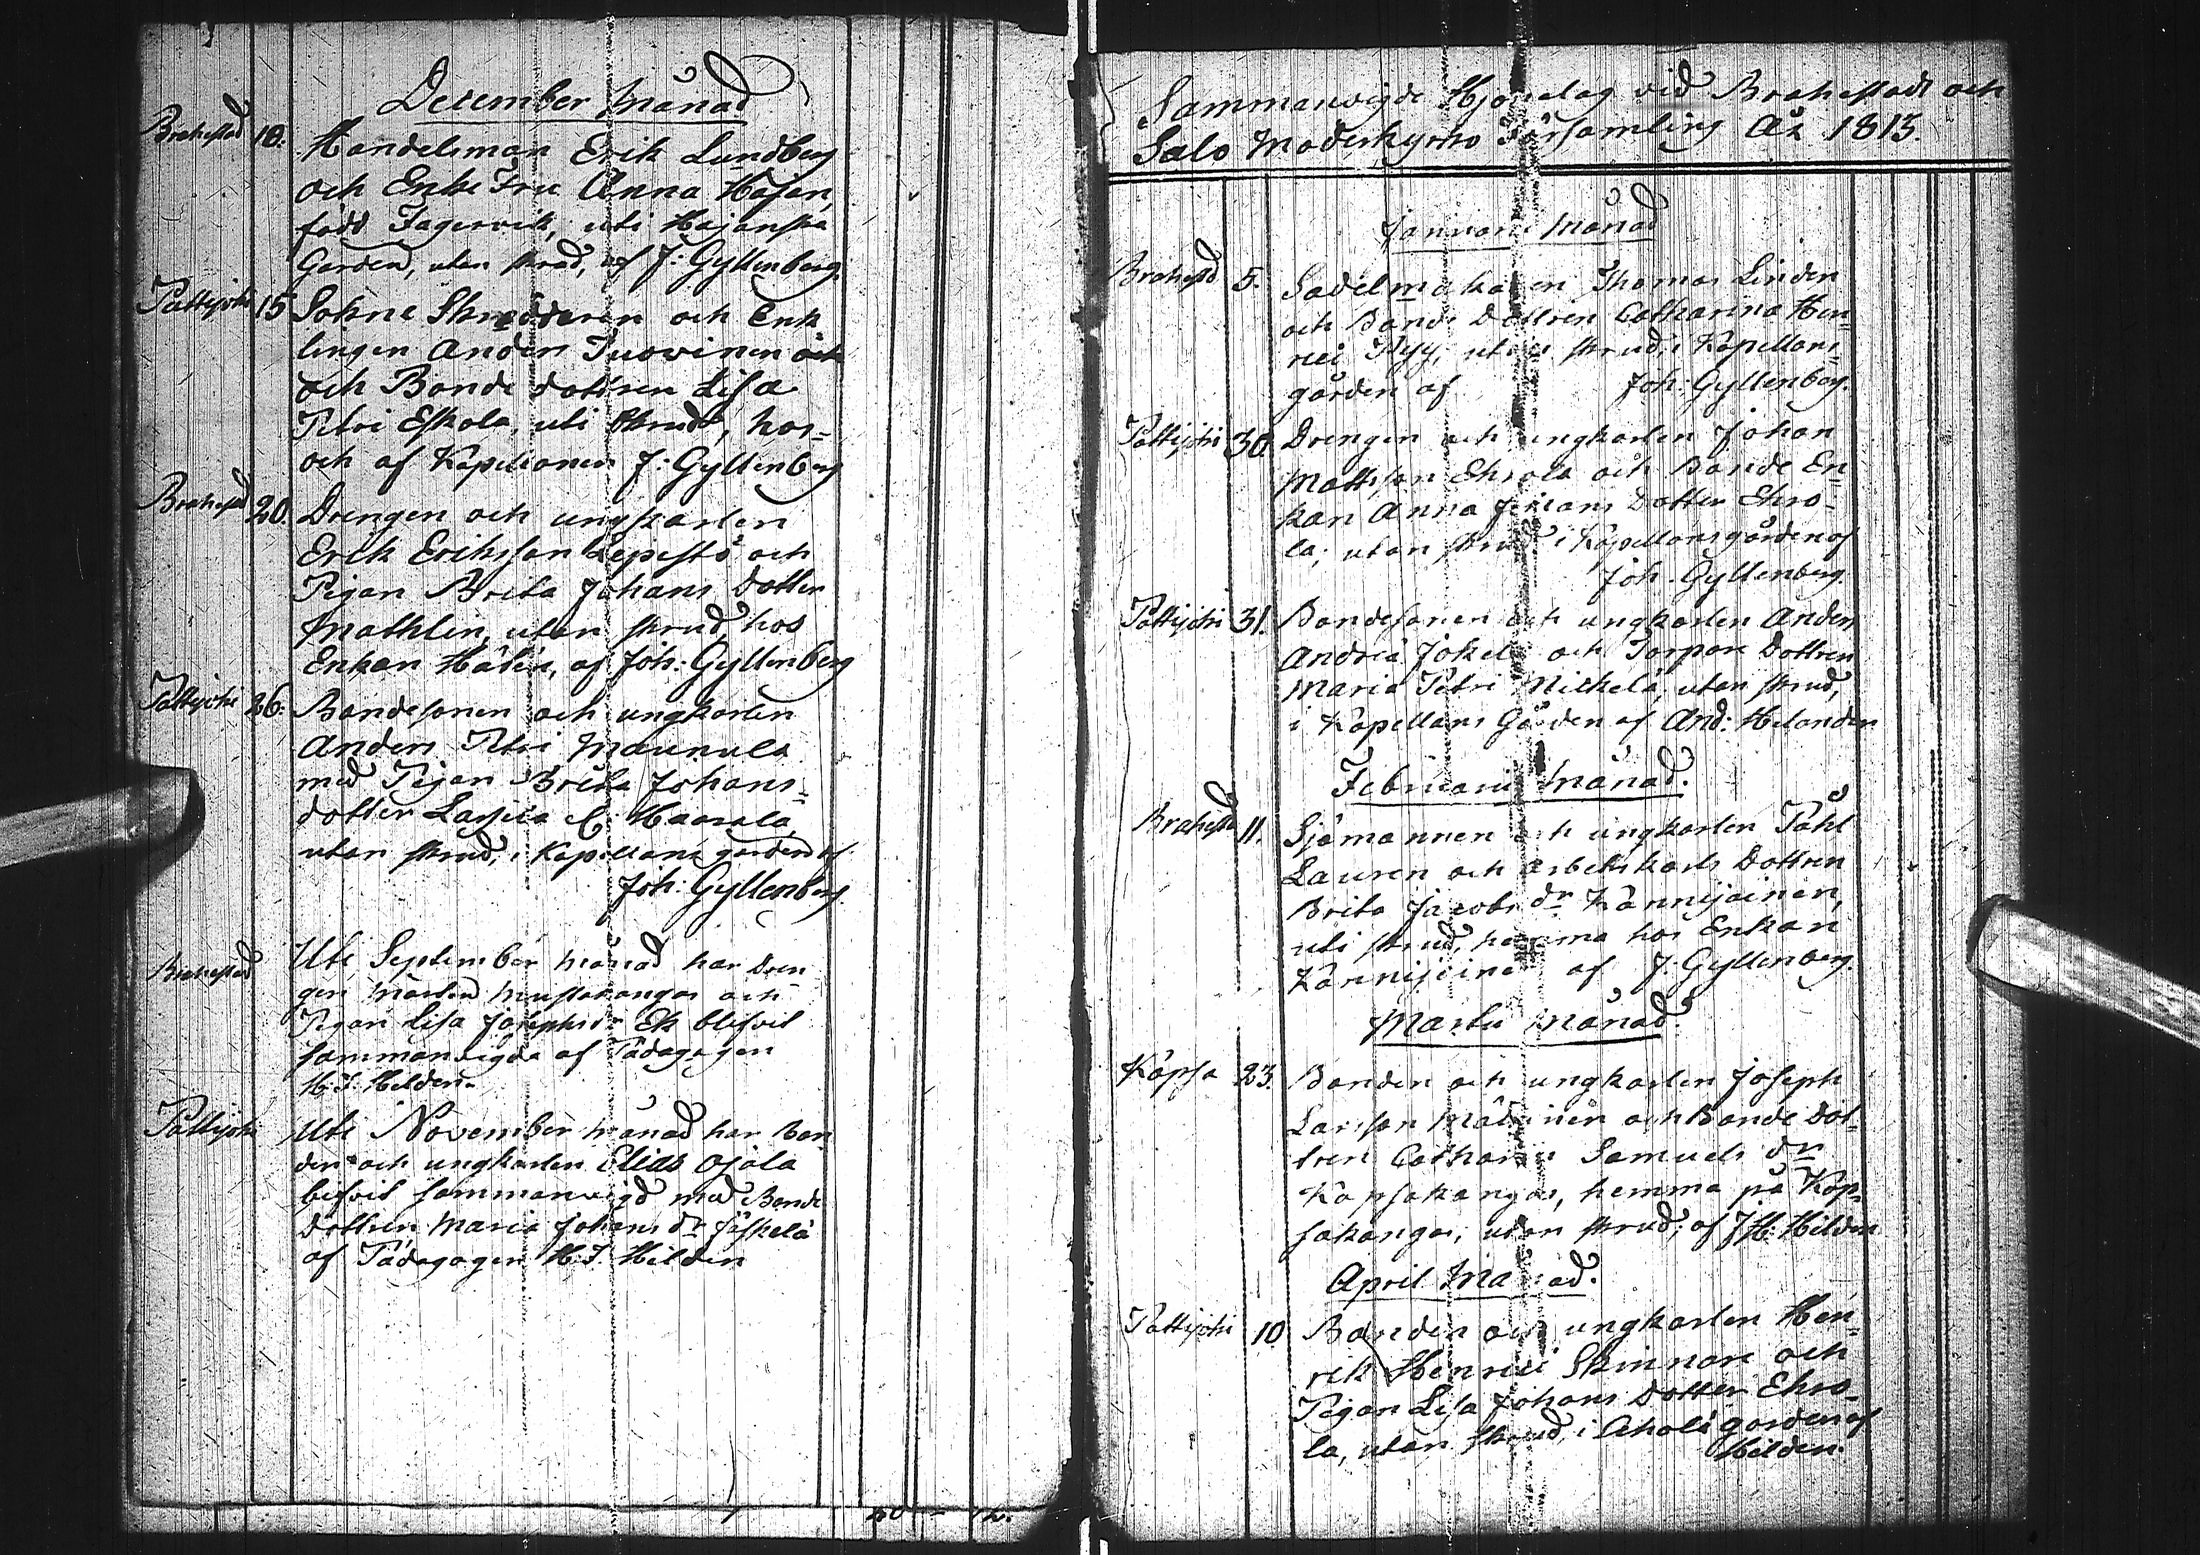 December Månad
Brahestad 10. Handelsman Erik Lundberg
och Enke Fru Anna Hajan,
född Fagervik, uti Hajanska
Gården, utan skrud, af J: Gyllenberg.
Pattijoki 15 Sokne Skräddaren och Enk
lingen Anders Tuovinen och
och Bonde dottren Lisa
Petri Eskola, uti Skrud, hos
och af Kapellanen J: Gyllenberg
Brahestad 20. Drengen och ungkarlen
Erik Eriksson Lepistö och
Pigan Brita Johans Dotter
Mathlin, utan skrud hos
Enkan Hålin, af Joh: Gyllenberg
Pattijoki 26. Bondesonen och ungkarlen
Anders Petri Maunula
med Pigan Brita Johans
dotter Lassila l. Haarala
utan skrud, i Kapellans gården af
Joh: Gyllenberg.
Brahestad Uti September månad har Dren
gen Mårten Mustakangas och
Pigan Lisa Josephs dr Ek blifvit
sammanvigda af Pädagogen
H: J. Hilden.
Pattijoki Uti November månad har Bon
den och ungkarlen Elias Ojala
blifvit sammanvigd med Bonde
dottren Maria Johans dr Jäskelä
af Pädagogen H: J. Hilden
20 12.
Sammanvigde Hjonelag vid Brahestads och
Salo Moderkyrko Församling År 1813.
Januari Månad
Brahestad 5. Sadelmakaren Thomas Linden
och Bonde Dottren Catharina Hen=
rici Pyy, utan skrud, i Kapellans=
gården af Joh: Gyllenberg.
Pattijoki 30 Drengen och ungkarlen Johan
Mattsson Ehrola och Bonde En=
kan Anna Johans Dotter Ehro=
la, utan skrud i Kapellansgården af
Joh. Gyllenberg.
Pattijoki 31. Bondesonen och ungkarlen Anders
Andreæ Jokela och Torpare Dottren
Maria Petri Mickelä, utan skrud,
i Kapellans Gården af And: Helander
Februari Månad.
Brahestad 11. Sjömannen och ungkarlen Påhl
Lauren och Arbetskarls Dottren
Brita Jacobs dr Kännijäinen,
uti skrud, hemma hos Enkan
Kännijäine af J: Gyllenberg.
Martii Månad.
Kopsa 23. Bonden och ungkarlen Joseph
Larsson och Bonde Dot=
tren Catharina Samuels dr
Kopsakangas, hemma på Kop=
sakangas, utan skrud; af J H: Hilden
April Månad.
Pattijoki 10 Bonden och ungkarlen Hen=
rik Henrici Skinnare och
Pigan Lisa Johans Dotter Ehro=
la, utan skrud, i Ahola gården af
Hilden.